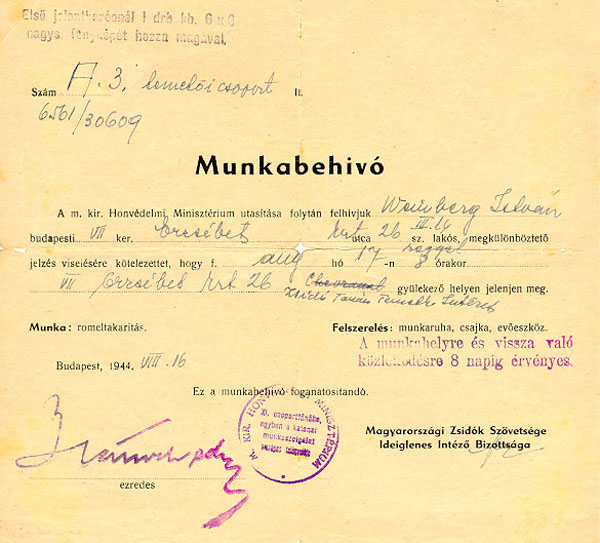 Első jelentkezésnél 1 drb kb. 6 x 6
nagys. fényképét hozza magával.
Szám A. 3. csoport II.
6561/30609
Munkabehivó
A m. kir. Honvédelmi Minisztérium utasítása folytán felhivjuk Weinberg István
budapesti VII ker. Erzsébet krt utca 26 III. sz. lakós, megkülönböztető
jelzés viselésére kötelezettet, hogy f. aug hó 17-n reggel 8 órakor
VII Erzsébet krt 26 gyülekező helyen jelenjen meg.
Munka: romeltakaritás.
Felszerelés: munkaruha, csajka, evőeszköz.
A munkahelyre és vissza való
közlekedésre 8 napig érvényes.
Budapest, 1944. VIII. 16
Ez a munkabehivó foganatositandó.
M. KIR. HONV MINISZTÉRIUM
XI. csoportfőnöke,
egyben a katonai
munkaszolgálat
ezredes
Magyarországi Zsidók Szövetsége
Ideiglenes Intéző Bizottsága